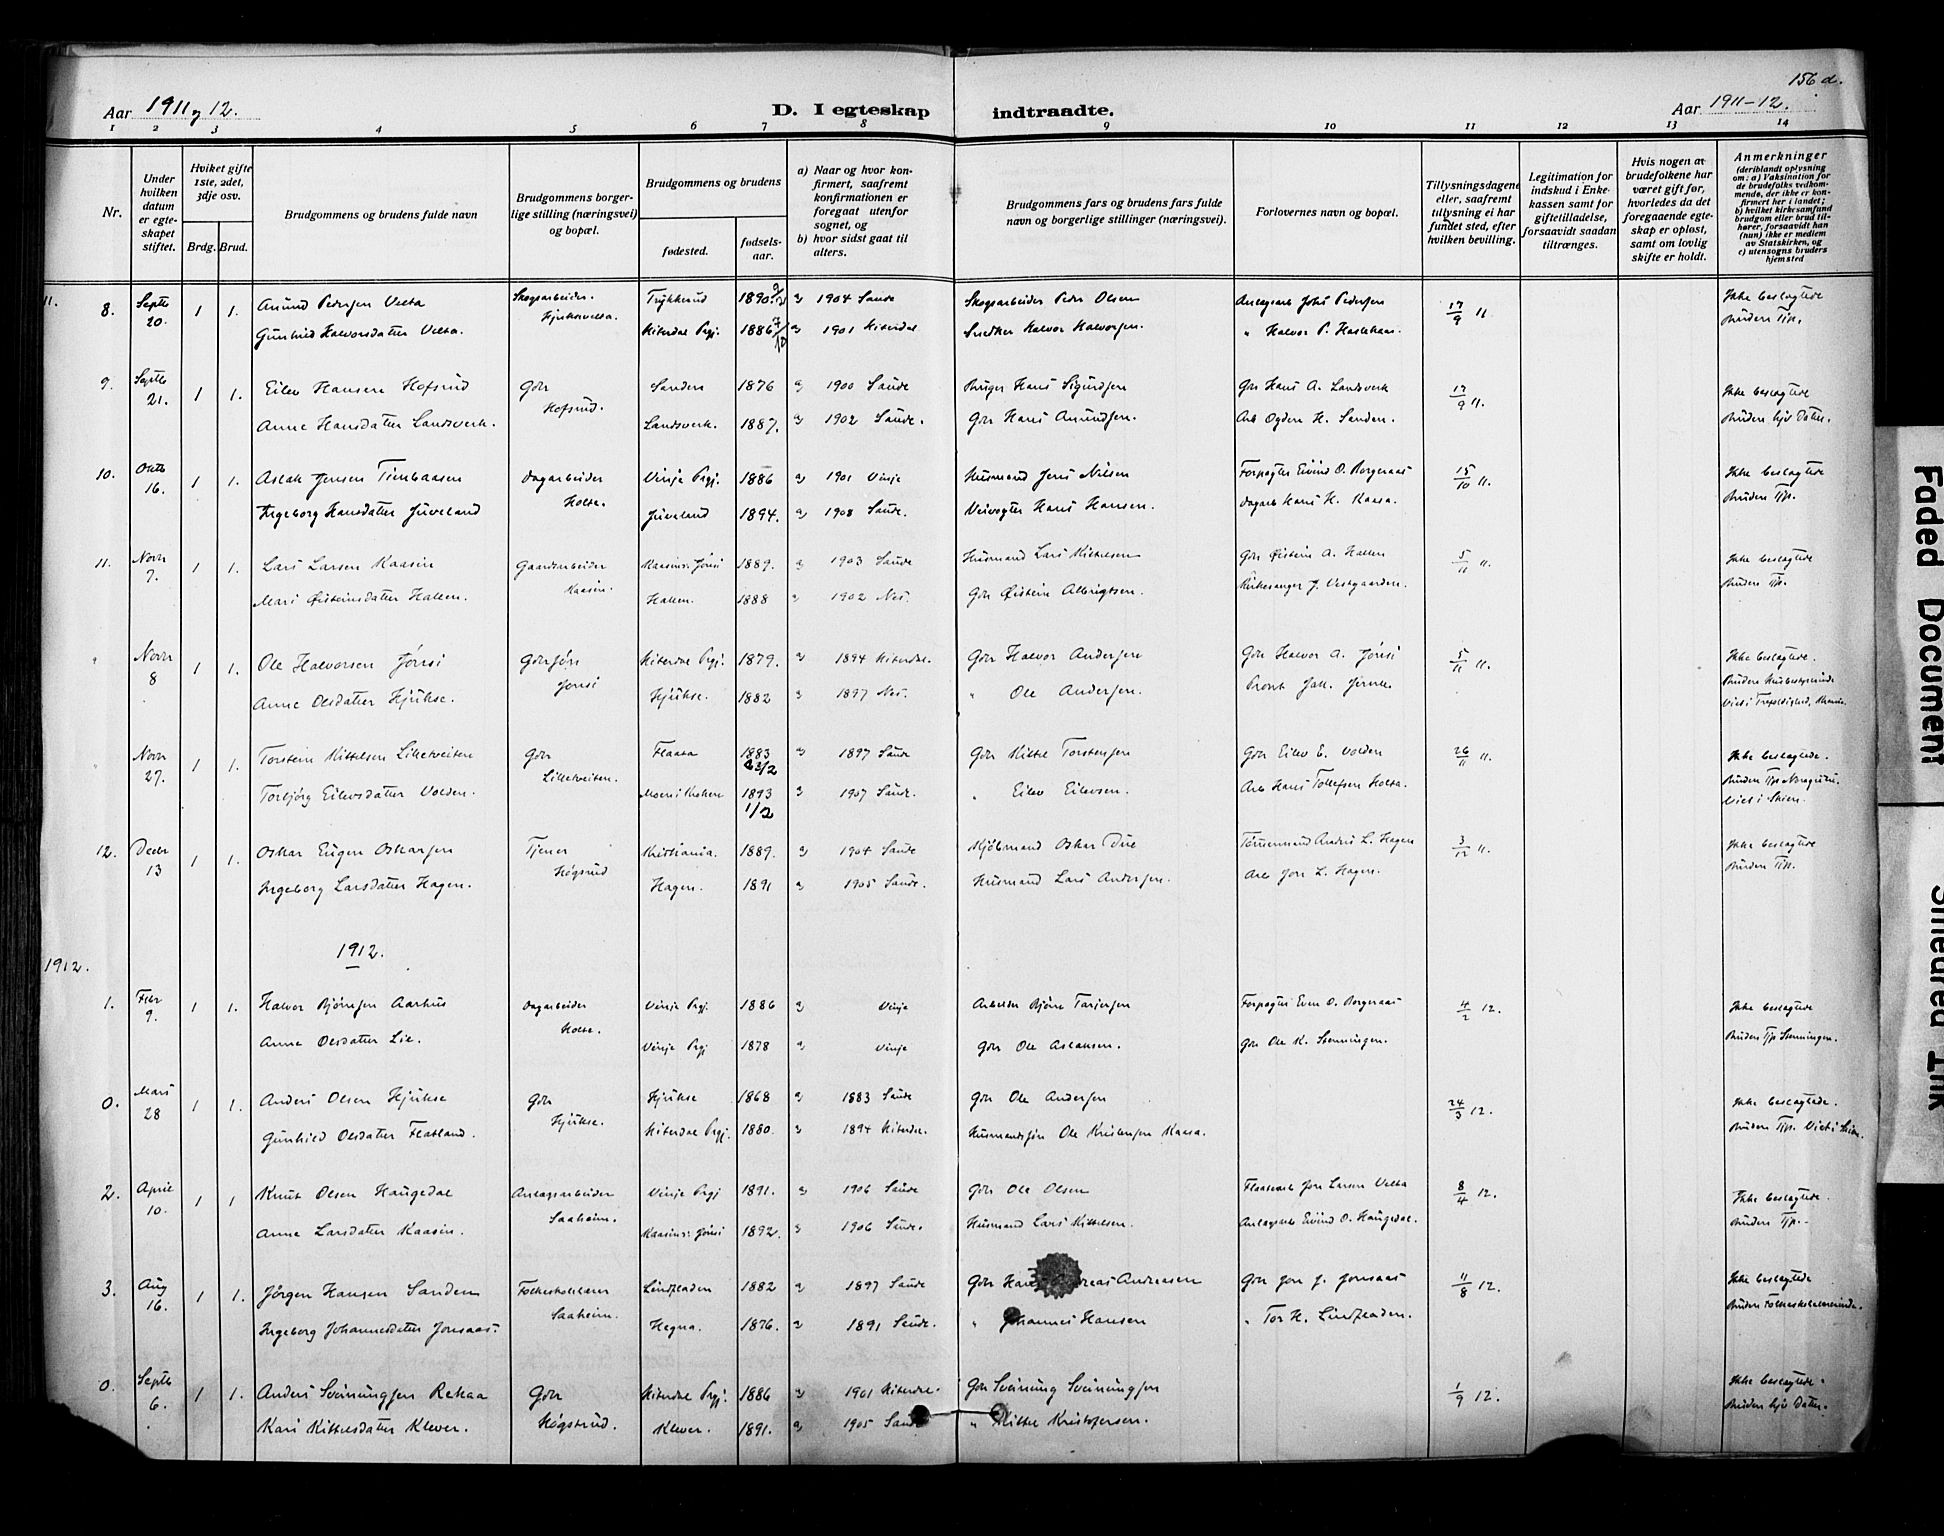 156 d.
Aar 1911 og 12. D. I egteskap indtraadte. Aar 1911-12.
1 2 3 4 5 6 7 8 9 10 11 12 13 14
Nr.
Under hvilken datum er egteskapet stiftet.
Hviket gifte 1ste, 2det, 3dje osv.
Brdg. Brud.
Brudgommens og brudens fulde navn
Brudgommens borgerlige stilling (næringsvei) og bopæl.
Brudgommens og brudens
fødested. fødselsaar.
a) Naar og hvor konfirmert, saafremt konfirmationen er foregaat utenfor sognet, og
b) hvor sidst gaat til alters.
Brudgommens fars og brudens fars fulde navn og borgerlige stillinger (næringsvei).
Forlovernes navn og bopæl.
Tillysningsdagene eller, saafremt tillysning ei har fundet sted, efter hvilken bevilling.
Legitimation for indskud i Enkekassen samt for giftetilladelse, forsaavidt saadan tiltrænges.
Hvis nogen av brudefolkene har været gift før, hvorledes da det foregaaende egteskap er opløst, samt om lovlig skifte er holdt.
Anmerkninger (deriblandt oplysning om: a) Vaksination for de brudefolks vedkommende, der ikke er konfirmert her i landet; b) hvilket kirkesamfund brudgom eller brud tilhører, forsaavidt han (hun) ikke er medlem av Statskirken, og c) utensogns bruders hjemsted
11.
8. Septb 20. 1 1. Amund Pedersen Velta Skogsarbeider. Hjuksevelta. 1890 9/2 a 1904 Saude Skogsarbeider Peder Olsen Anlagsarb Johs Pedersen 17/9 11 Ikke beslagtede
Gunhild Halvorsdatter Velta. Hiterdal Prgj. 1886 7/10 a 1901 Hiterdal Snedker Halvor Halvorsen. " Halvor P. Haslekaas. Bruden Tjp.
9. Septb 21. 1 1. Eilev Hansen Hofsrud Gbr Hofsrud. Sanden 1876 a 1900 Saude Bruger Hans Sigurdsen Gbr Hans A. Landsverk 17/9 11. Ikke beslagtede
Anne Hansdatter Landsverk. Landsverk. 1887. a 1902 Saude. Gbr Hans Amundsen. Arb Ogden H. Sanden. Bruden hjv datter.
10. Oktb 16. 1 1. Aslak Jensen Timbaasen Dagarbeider Holta. Vinje Prgj. 1886 a 1901 Vinje Husmand Jens Nilsen Forpagter Eivind O. Borgeraas 15/10 11. Ikke beslagtede
Ingeborg Hansdatter Juveland Juveland 1894. a 1908 Saude. Veivogter Hans Hansen. Dagarb Hans H. Kaasa. Bruden Tjp.
11. Novb 7. 1 1. Lars Larsen Kaasin Gaardarbeider Kaasin. Kaasins: Jønsi 1889. a 1903 Saude Husmand Lars Kittelsen Gbr Øistein A. Hallem 5/11 11. Ikke beslagtede
Mari Øisteinsdatter Hallem. Hallem. 1888 a 1902 Nes. Gbr Øistein Albrigtsen. Kirkesanger J. Vestgaarden. Bruden Tjp.
" Novb 8 1 1. Ole Halvorsen Jønsi Gbrsøn Jønsi Hiterdal Prgj. 1879. a 1894 Hiterdal. Gbr Halvor Andersen Gbr Halvor A. Jønsi 5/11 11. Ikke beslagtede.
Anne Olsdatter Hjukse. Hjukse. 1882 a 1897 Nes. " Ole Andersen. Bruden Husbestyrerinde
" Novb 27. 1 1. Torstein Kittelsen Lilletveiten Gbr Lilletveiten. Flaata 1883 23/2 a 1897 Saude Gbr Kittel Torstensen Gbr Eilev E. Volden 26/11 11. Ikke beslagtede.
Torbjørg Eilevsdatter Volden. 1893 1/2 a 1907 Saude. " Eilev Eilevsen. Arb Hans Tollefsen Holta. Viet i Skien.
12. Decbr 13 1 1. Oskar Eugen Oskarsen Tjener Høgsrud Kristiania. 1889. a 1904 Saude Kjøbmand Oskar Due Tømmermand Anders L. Hagen 3/12 11. Ikke beslagtede
Ingeborg Larsdatter Hagen. Hagen. 1891 a 1905 Saude. Husmand Lars Andersen. Arb Jon L. Hagen. Bruden Tjp.
1912.
1912.
1. Febr 9. 1 1. Halvor Bjørnsen Aarhus Dagarbeider Holta. Vinje Prgj. 1886 a Vinje Arbeider Bjørn Tarjeisen Forpagter Even O. Borgeraas 4/2 12. Ikke beslagtede
Anne Olsdatter Lie. Vinje Prgj 1878 a Vinje Gbr Ole Aslaksen. Gbr Ole K. Stenningen. Bruden Tjp Stenningen.
0. Mars 28 1 1. Anders Olsen Hjukse Gbr Hjukse. Hjukse 1868 a 1883 Saude Gbr Ole Andersen 24/3 12. Ikke beslagtede.
Gunhild Olsdatter Flatland. Hiterdal Prgj. 1880. a 1894 Hiterdal. Husmandssøn Ole Kristensen Kaasa. Bruden Tjp. Viet i Skien.
2. April 10. 1 1 Knut Olsen Haugedal Anlagsarbeider Saaheim. Vinje Prgj 1891. a 1906 Saude Gbr Ole Olsen Jon Larsen Velta 8/4 12. Ikke beslagtede.
Anne Larsdatter Kaasin. Kaasins: Jønsi 1892. a 1906 Saude. Husmand Lars Kittelsen. Anlagsarb Eivind O. Haugedal. Bruden Tjp.
3. Aug 16. 1 1. Jørgen Hansen Sanden Folkeskolelærer Saaheim. Lindfladen 1882 a 1897 Saude Gbr Hans Andreas Andreasen Gbr Jon J. Jonsaas 11/8 12. Ikke beslagtede
Ingeborg Johannesdatter Jonsaas. Hegna. 1876. a 1891 Saude. " Johannes Hansen " Tor H. Lindfladen. Bruden Folkeskolelærerinde.
0. Septb 6. 1 1. Anders Sveinungsen Rekaa Gbr Høgstrud. Hiterdal Prgj. 1886 a 1901 Hiterdal. Gbr Sveinung Sveinungsen 1/9 12. Ikke beslagtede.
Kari Kittelsdatter Klever. Klever. 1891. a 1905 Saude " Kittel Kristofersen. Bruden hjv datter.
Faded Document
Smeared Ink